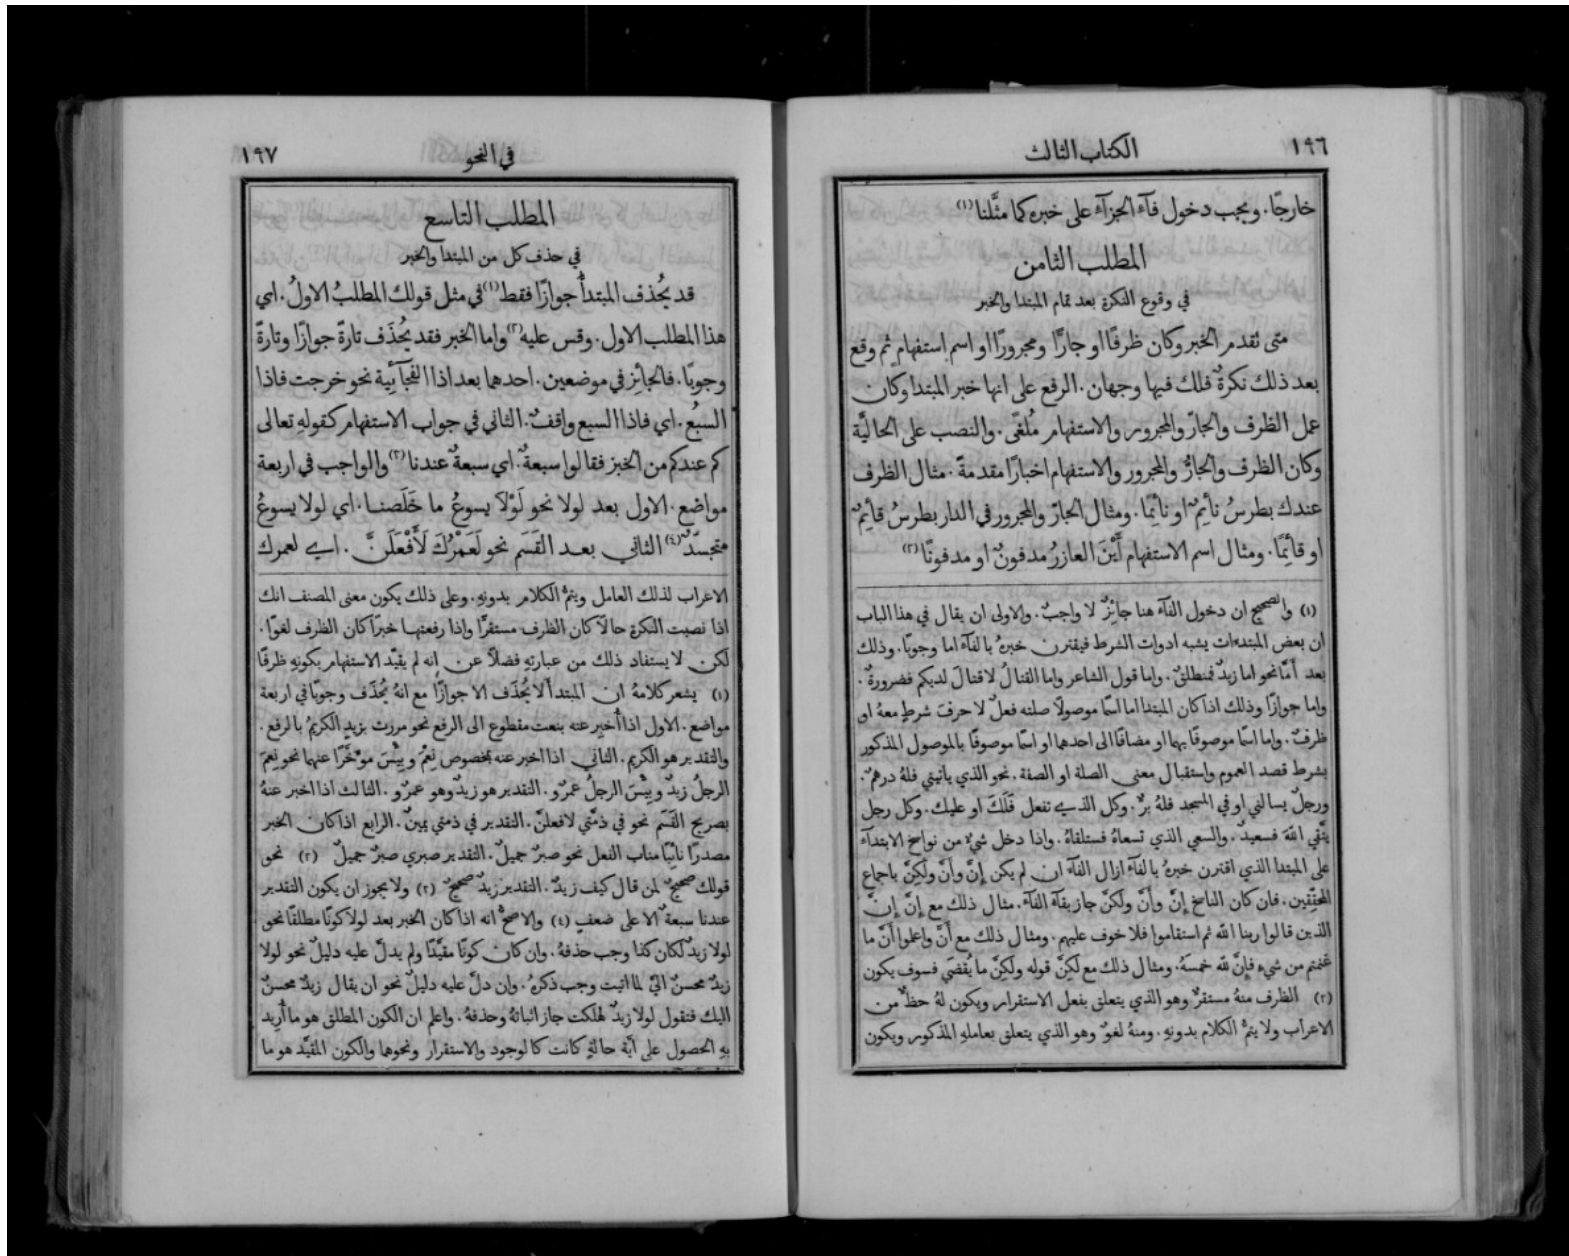 ١٩٦
الكتاب الثالث
خارجًا. ويجب دخول فآء الجزآء على خبره كما مثَّلنا (١)
المطلب الثامن
في وقوع النكرة بعد تمام المبتدا والخبر
متى تقدم الخبر وكان ظرفًا او جارًّا ومجرورًا او اسم استفهام ثم وقع
بعد ذلك نكرةٌ فلك فيها وجهان. الرفع على انها خبر المبتدا وكان
عمل الظرف والجارّ والمجرور والاستفهام مُلغًى. والنصب على الحاليَّة
وكان الظرف والجارُّ والمجرور والاستفهام اخبارًا مقدمةً. مثال الظرف
عندك بطرسُ نائِمٌ او نائِمًا. ومثال الجارّ والمجرور في الدار بطرسُ قائِمٌ
او قائِمًا. ومثال اسم الاستفهام أَيْنَ العازرُ مدفونٌ او مدفونًا (٢)
(١) والصحيح ان دخول الفآء هنا جائِزٌ لا واجبٌ. والاولى ان يقال في هذا الباب
ان بعض المبتدءات يشبه ادوات الشرط فيقترن خبرهُ بالفآء اما وجوبًا. وذلك
بعد أمَّا نحو اما زيدٌ فمنطلقٌ. واما قول الشاعر واما القتالُ لا قتالَ لديكم فضرورةٌ.
واما جوازًا وذلك اذا كان المبتدا اما اسمًا موصولًا صلته فعلٌ لا حرفَ شرطٍ معهُ او
ظرفٌ. واما اسمًا موصوفًا بهما او مضافًا الى احدهما او اسمًا موصوفًا بالموصول المذكور
بشرط قصد العموم واستقبال معنى الصلة او الصفة. نحو الذي يأتيني فلهُ درهمٌ.
ورجلٌ يسالني او في المسجد فلهُ برٌّ. وكل الذي تفعل فَلَكَ او عليك. وكل رجل
يتَّقي اللهَ فسعيدٌ. والسعي الذي تسعاهُ فستلقاهُ. واذا دخل شيءٌ من نواسخ الابتدآء
على المبتدا الذي اقترن خبرهُ بالفآء ازال الفآء ان لم يكن إِنَّ وأَنَّ ولَكِنَّ باجماع
المحقّقين. فان كان الناسخ إِنَّ وأَنَّ ولَكِنَّ جاز بقآء الفآء. مثال ذلك مع إِنَّ إِنَّ
الذين قالوا ربنا الله ثم استقاموا فلا خوف عليهم. ومثال ذلك مع أَنَّ واعلموا أَنَّ ما
غنمتم من شيء فإِنَّ لله خمسهُ. ومثال ذلك مع لكِنَّ قوله ولكِنَّ ما يُقضَى فسوف يكون
(٢) الظرف منهُ مستقرٌّ وهو الذي يتعلق بفعل الاستقرار ويكون لهُ حظٌّ من
الاعراب ولا يتمُّ الكلام بدونهِ. ومنهُ لغوٌ وهو الذي يتعلق بعاملهِ المذكور ويكون
في النحو
١٩٧
المطلب التاسع
في حذف كل من المبتدأ والخبر
قد يُحذف المبتدأُ جوازًا فقط (١) في مثل قولك المطلبُ الاولُ. اي
هذا المطلب الاول. وقس عليه (٢) واما الخبر فقد يُحذَف تارةً جوازًا وتارةً
وجوبًا. فالجائِز في موضعين. احدهما بعد اذا الفجآئية نحو خرجت فاذا
السبُعُ. اي فاذا السبع واقفٌ. الثاني في جواب الاستفهام كقولهِ تعالى
كم عندكم من الخبز فقالوا سبعةٌ. اي سبعةٌ عندنا (٣) والواجب في اربعة
مواضع. الاول بعد لولا نحو لَوْلَا يسوعُ ما خَلَصنا. اي لولا يسوعُ
متجسّدٌ (٤) الثاني بعد القَسَم نحو لَعَمْرُكَ لَأَفْعَلَنَّ. اي لعمرك
الاعراب لذلك العامل ويتمُّ الكلام بدونهِ. وعلى ذلك يكون معنى المصنف انك
اذا نصبت النكرة حالًا كان الظرف مستقرًّا واذا رفعتها خبرًا كان الظرف لغوًا.
لكن لا يستفاد ذلك من عبارتهِ فضلًا عن انه لم يقيّد الاستفهام بكونهِ ظرفًا
(١) يشعر كلامهُ ان المبتدأ لا يُحذَف الا جوازًا مع انهُ يُحذَف وجوبًا في اربعة
مواضع. الاول اذا أُخبِر عنه بنعت مقطوع الى الرفع نحو مررت بزيدٍ الكريمُ بالرفع.
والتقدير هو الكريم. الثاني اذا اخبر عنه بمخصوص نِعْمَ وبِئْسَ موَخَّرًا عنهما نحو نِعمَ
الرجلُ زيدٌ وبِئْسَ الرجلُ عمرٌو. التقدير هو زيدٌ وهو عمرٌو. الثالث اذا اخبر عنهُ
بصريح القَسَم نحو في ذمَّتي لافعلنَّ. التقدير في ذمتي يمينٌ. الرابع اذا كان الخبر
مصدرًا نائِبًا مناب الفعل نحو صبرٌ جميلٌ. التقدير صبري صبرٌ جميلٌ (٢) نحو
قولك صحيحٌ لمن قال كيف زيدٌ. التقدير زيدٌ صحيحٌ (٣) ولا يجوز ان يكون التقدير
عندنا سبعةٌ الا على ضعفٍ (٤) والاصحُّ انه اذا كان الخبر بعد لولا كونًا مطلقًا نحو
لولا زيدٌ لكان كذا وجب حذفهُ. وان كان كونًا مقيَّدًا ولم يدلَّ عليه دليلٌ نحو لولا
زيدٌ محسنٌ اليَّ لما اتيت وجب ذكرهُ. وان دلَّ عليه دليلٌ نحو ان يقال زيدٌ محسنٌ
اليك فتقول لولا زيدٌ هلكت جاز اثباتهُ وحذفهُ. واعلم ان الكون المطلق هو ما أُرِيد
بهِ الحصول على أيّة حالةٍ كانت كالوجود والاستقرار ونحوها والكون المقيَّد هو ما